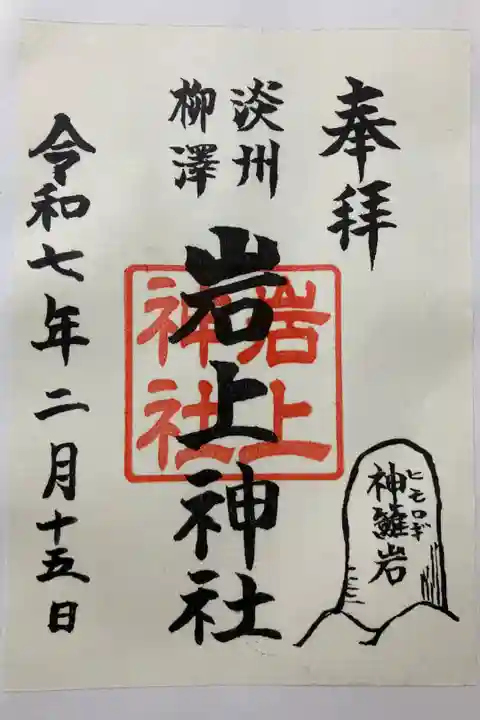 奉拝
淡州
柳澤
岩上神社
岩上
神社
ヒモロギ
神籬岩
令和七年二月十五日